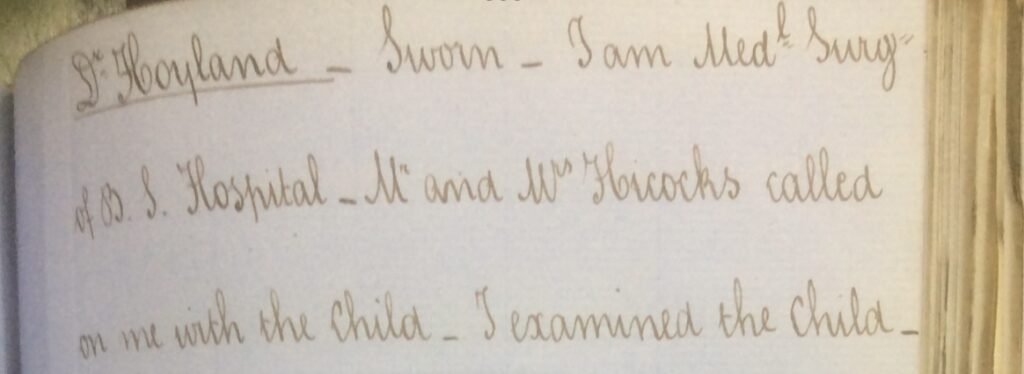 Dr. Hoyland – Sworn – I am Medl Surg-
of B. S. Hospital – Mr and Mrs Hicocks called
on me with the Child – I examined the Child –